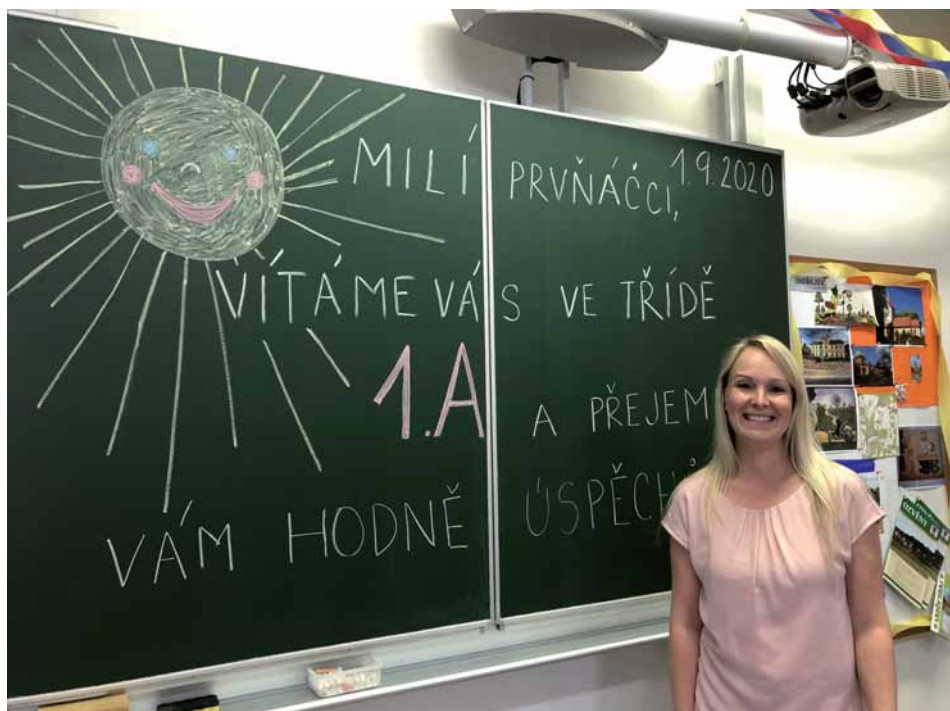 MILÍ PRVŇÁČCI, 1.9.2020
VÍTÁME VÁS VE TŘÍDĚ
1.A A PŘEJEM
VÁM HODNĚ ÚSPĚCHŮ
OZVĚNY